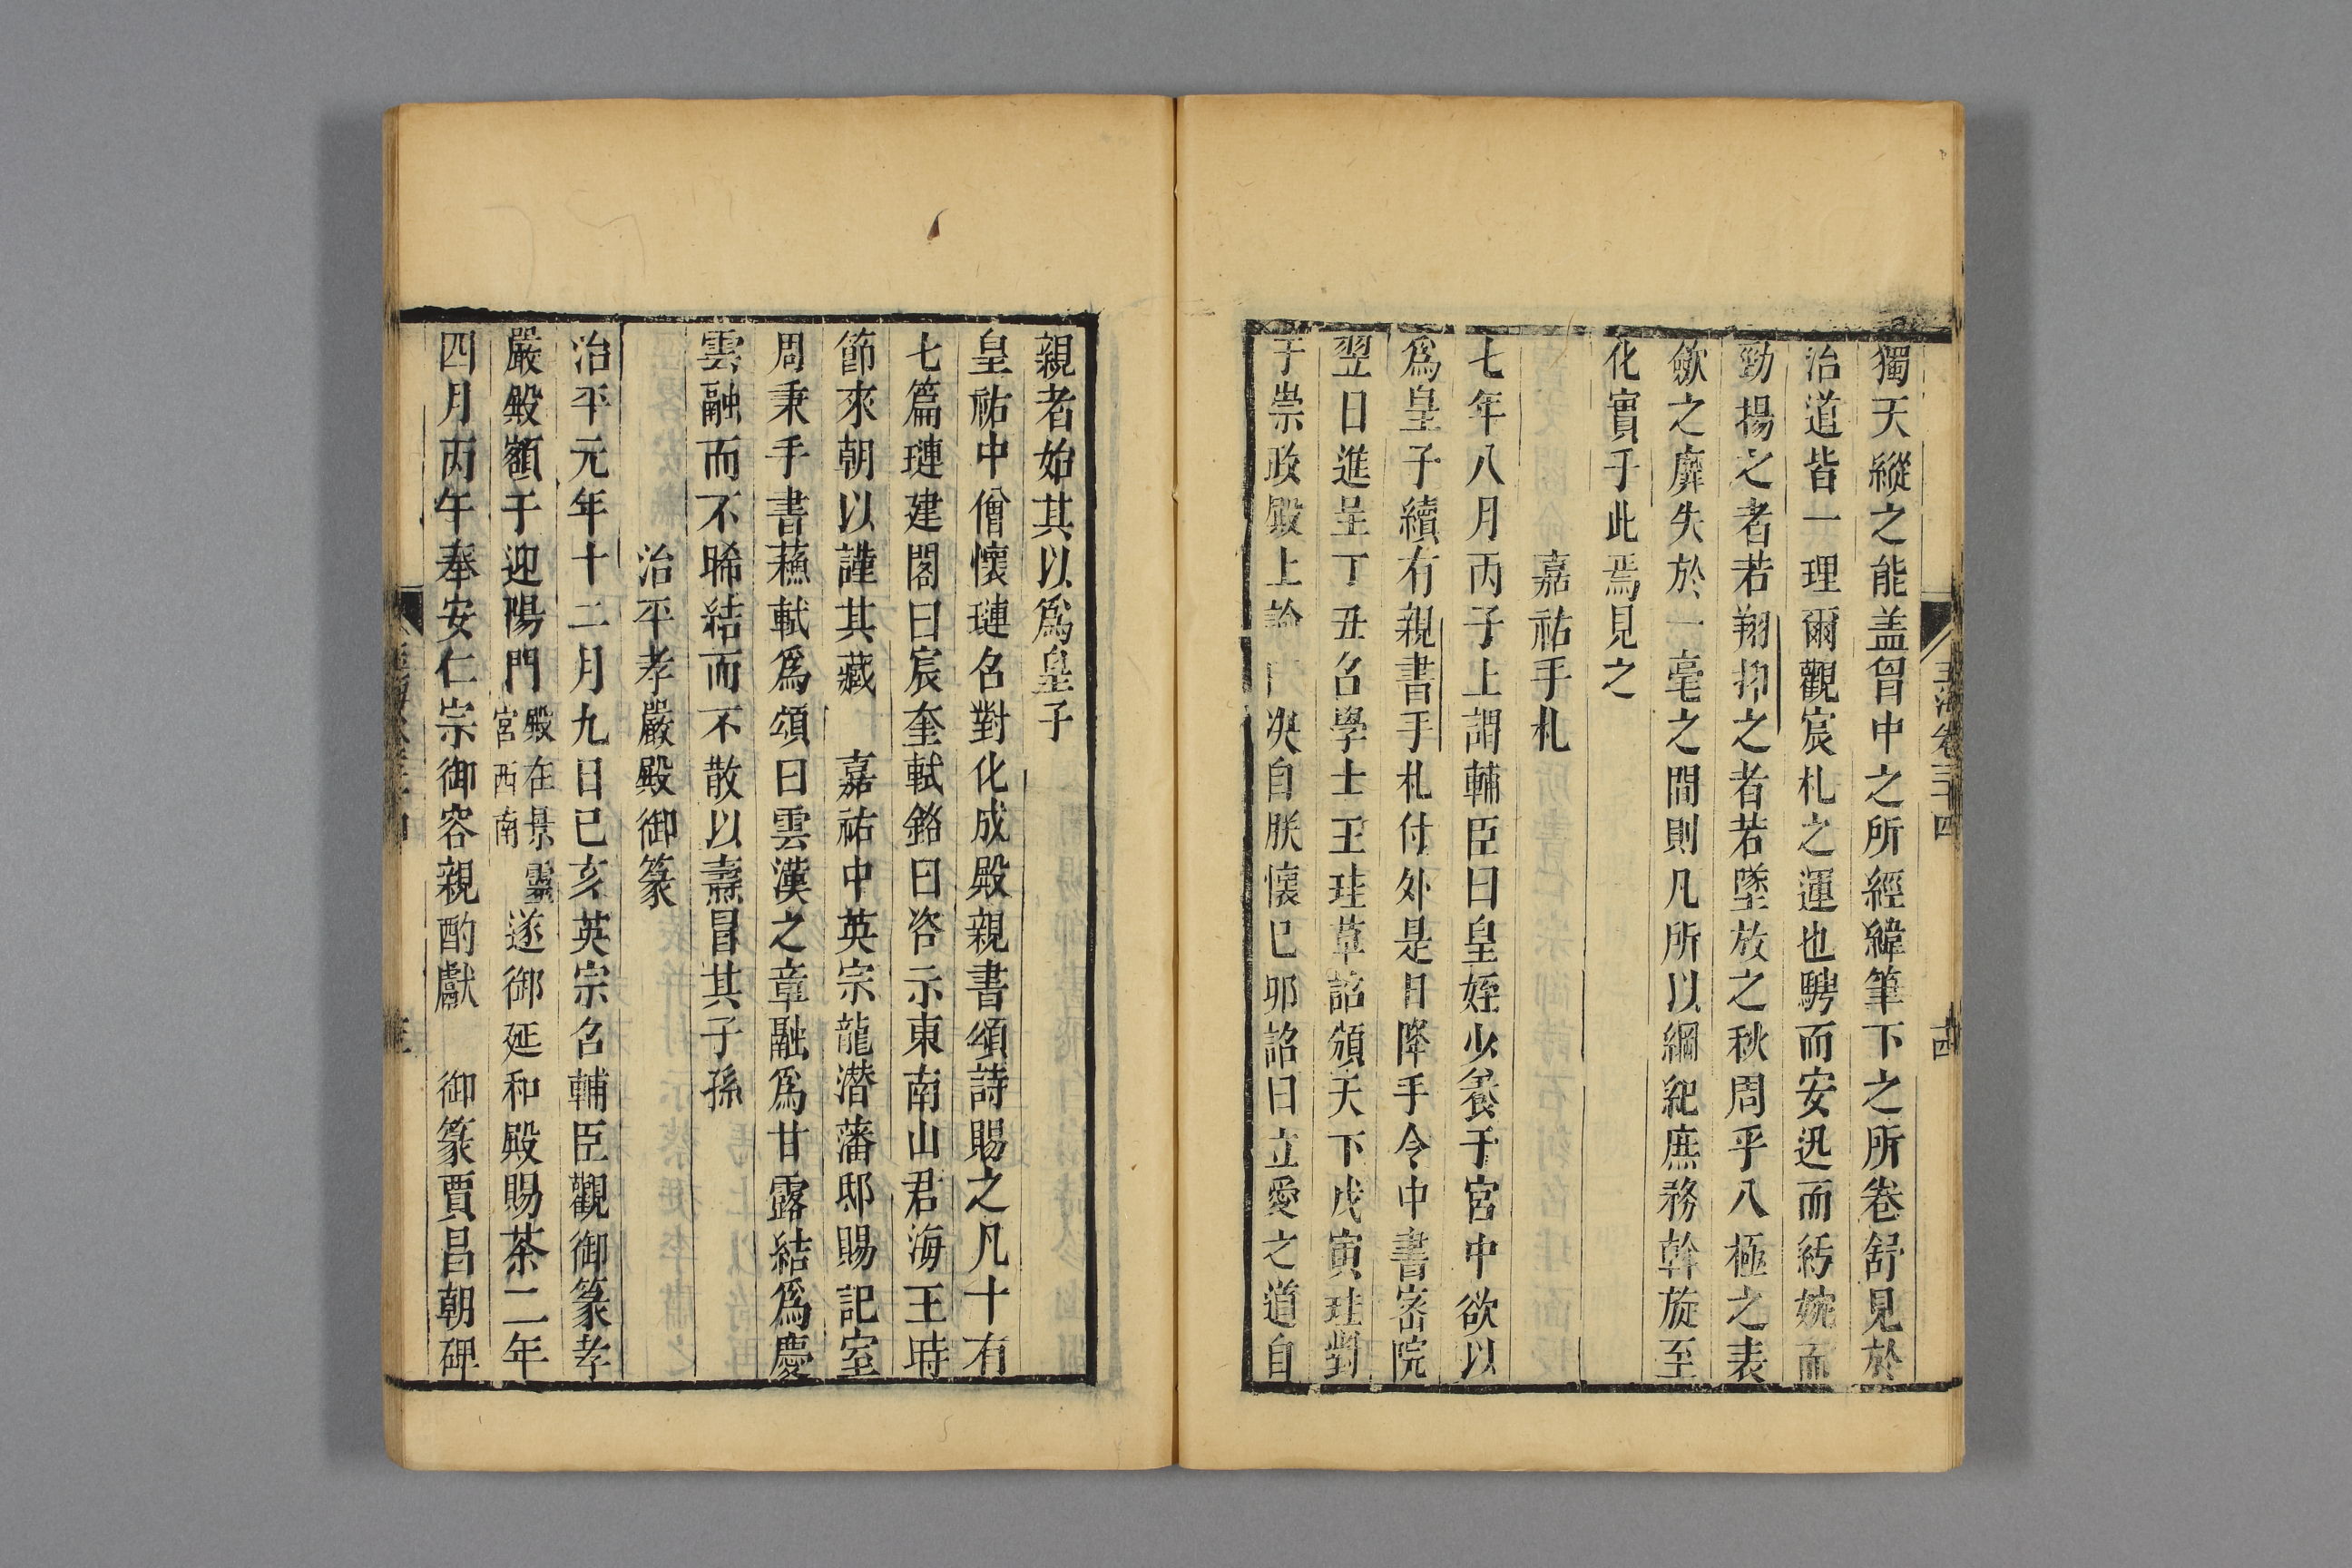 獨天縱之能盖胷中之所經緯筆下之所卷舒見於
治道皆一理爾觀宸札之運也騁而安迅而紆婉而
勁揚之者若翔抑之者若墜放之秋周乎八極之表
斂之靡失於一毫之間則凡所以綱紀庶務斡旋至
化實于此焉見之
嘉祐手札
七年八月丙子上謂輔臣曰皇姪少養于宮中欲以
爲皇子續有親書手札付外是日降手令中書密院
翌日進呈丁丑名學士王珪草詔頒天下戊寅珪對
于崇政殿上諭 决自朕懷已卯詔曰立愛之道自
玉海卷三十四
親者始其以爲皇子
皇祐中僧懷璉名對化成殿親書頌詩賜之凡十有
七篇璉建閣曰宸奎軾銘曰咨示東南山君海王時
節來朝以謹其藏　嘉祐中英宗龍潛藩邸賜記室
周秉手書蘓軾爲頌曰雲漢之章融爲甘露結爲慶
雲融而不晞結而不散以壽冒其子孫
治平孝嚴殿御篆
治平元年十二月九日已亥英宗名輔臣觀御篆孝
嚴殿額于迎陽門殿在景靈宮西南遂御延和殿賜茶二年
四月丙午奉安仁宗御容親酌獻　御篆賈昌朝碑